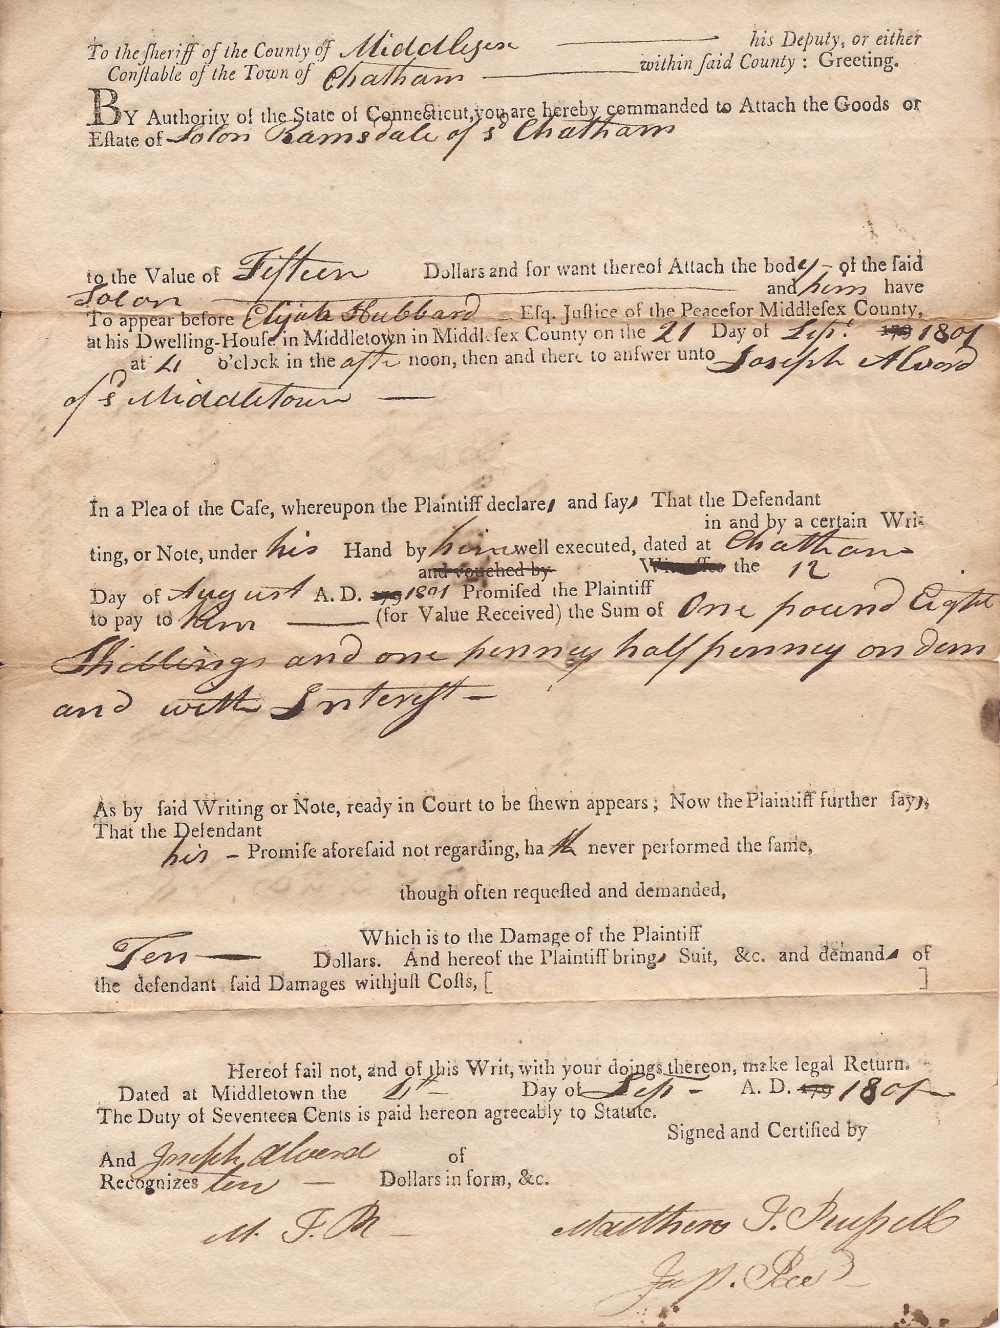 To the sheriff of the County of Middlesex his Deputy, or either
Constable of the Town of Chatham within said County: Greeting.
BY Authority of the State of Connecticut, you are hereby commanded to Attach the Goods or
Estate of Solon Ramsdale of sd Chatham
to the Value of Fifteen Dollars and for want thereof Attach the body of the said
Solon and him have
To appear before Elijah Hubbard Esq. Justice of the Peace for Middlesex County,
at his Dwelling-House in Middletown in Middlesex County on the 21 Day of Sept. 179 1801
at 4 o'clock in the after noon, then and there to answer unto Joseph Alvord
of sd Middletown
In a Plea of the Case, whereupon the Plaintiff declares and says That the Defendant
in and by a certain Wri-
ting, or Note, under his Hand by him well executed, dated at Chatham
and vouched by Witnesses the 12
Day of August A. D. 179 1801 Promised the Plaintiff
to pay to him (for Value Received) the Sum of One pound Eight
Shillings and one penney halfpenney on dem
and with Interest
As by said Writing or Note, ready in Court to be shewn appears; Now the Plaintiff further says,
That the Defendant
his - Promise aforesaid not regarding, hath never performed the same,
though often requested and demanded,
Which is to the Damage of the Plaintiff
Ten Dollars. And hereof the Plaintiff brings Suit, &c. and demands of
the defendant said Damages with just Costs, [ ]
Hereof fail not, and of this Writ, with your doings thereon, make legal Return.
Dated at Middletown the Day of Sept - A. D. 179 1801
The Duty of Seventeen Cents is paid hereon agreeably to Statute.
Signed and Certified by
And Joseph Alvord of
Recognizes ten - Dollars in form, &c.
M. T. R - Matthew T. Russell
Jus. Peace